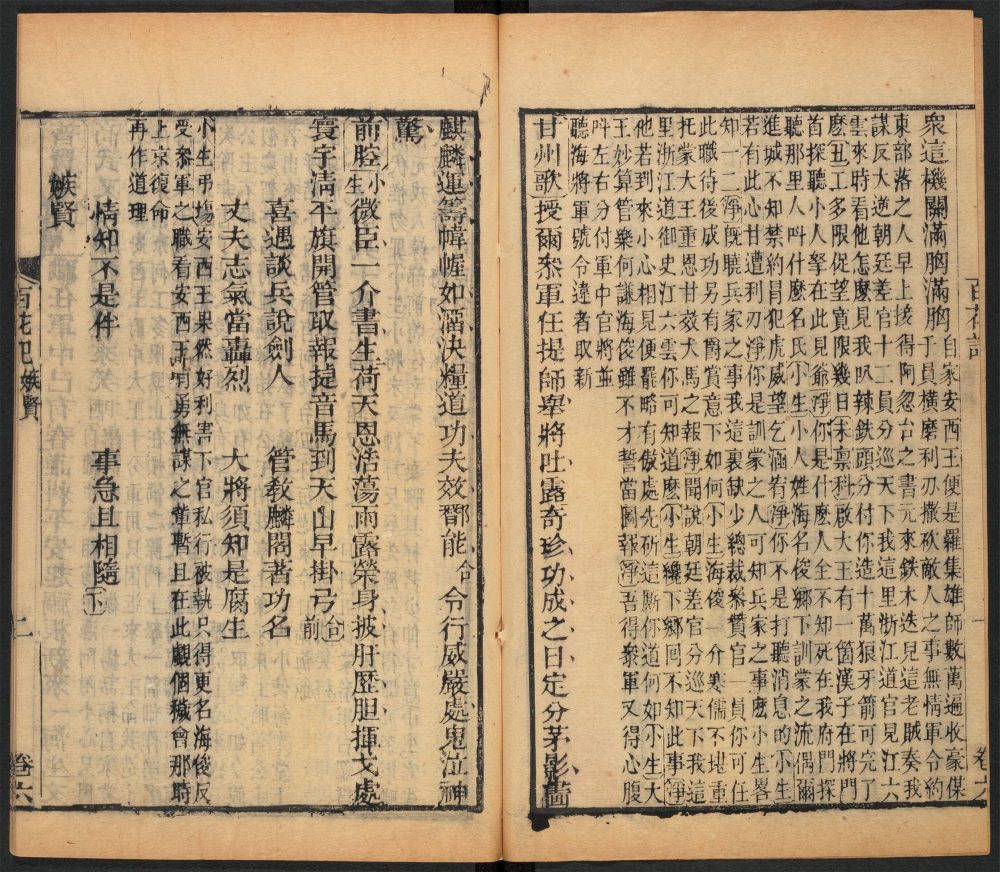 百花記
衆這機關滿胸滿胸自家安西王便是羅集雄師數萬遍收豪傑
于員橫磨利刃撒砍敵人之事無情軍令約
東部落之人早上接得阿忽台之書元來鉄木迭見這老賊奏我
謀反大逆朝廷差官十二員分巡天下我這里浙江道官見江六
雲來時看他怎麽見我叺辣鉄頭分付你造十萬狼牙箭可完了
麽丑工多限促望寬限幾日末禀科啟大王有一箇漢子在將門
首探聽小人拏在此見爺淨你是什麽人全不知死在我府門探
聽那里人呌什麽名氏小生小人姓海名俊鄉下訓蒙之流偶爾
進城不知禁約冐犯虎威望乞涵宥淨你不是打聽消息的小生
若有此心甘遭利刃淨你是訓蒙之人可知兵家之事麽小生畧
知一二淨旣曉兵家之事我這裏缺少總裁叅贊官一員你可任
此職待後成功另有爵賞意下如何小生海俊一介寒儒不堪重
托蒙大王重恩甘效犬馬之報淨聞說朝廷差官分巡天下我這
里浙江道御史江六雲你可知道麽小生纔下鄉囘不知此事淨
他若到來小心相見便罷略有傲處先斫這厮你道何如小生大
王妙算管樂何謙海俊雖不才誓當圖報淨吾得衆軍又得心腹
呌左右分付軍中官將並
聽海將軍號令違者取斬
甘州歌授爾叅軍任提師舉將吐露奇珍功成之日定分茅影畵
卷六
麒麟運籌幃幄如㵎決糧道功夫效鄼能合令行威嚴處鬼泣神
驚
前腔小生微臣一介書生荷天恩浩蕩雨露榮身披肝歷胆揮戈處
寰宇清平旗開管取報捷音馬到天山早掛弓合前
喜遇談兵說劍人 管敎麟閣著功名
丈夫志氣當轟烈 大將須知是腐生
小生弔塲安西王果然好利害下官私行被執只得更名海俊反
受叅軍之職看安西王有勇無謀之輩暫且在此覷個機會那時
上京復命
再作道理
情知不是伴 事急且相隨下
嫉賢
百花記 嫉賢
二
卷六